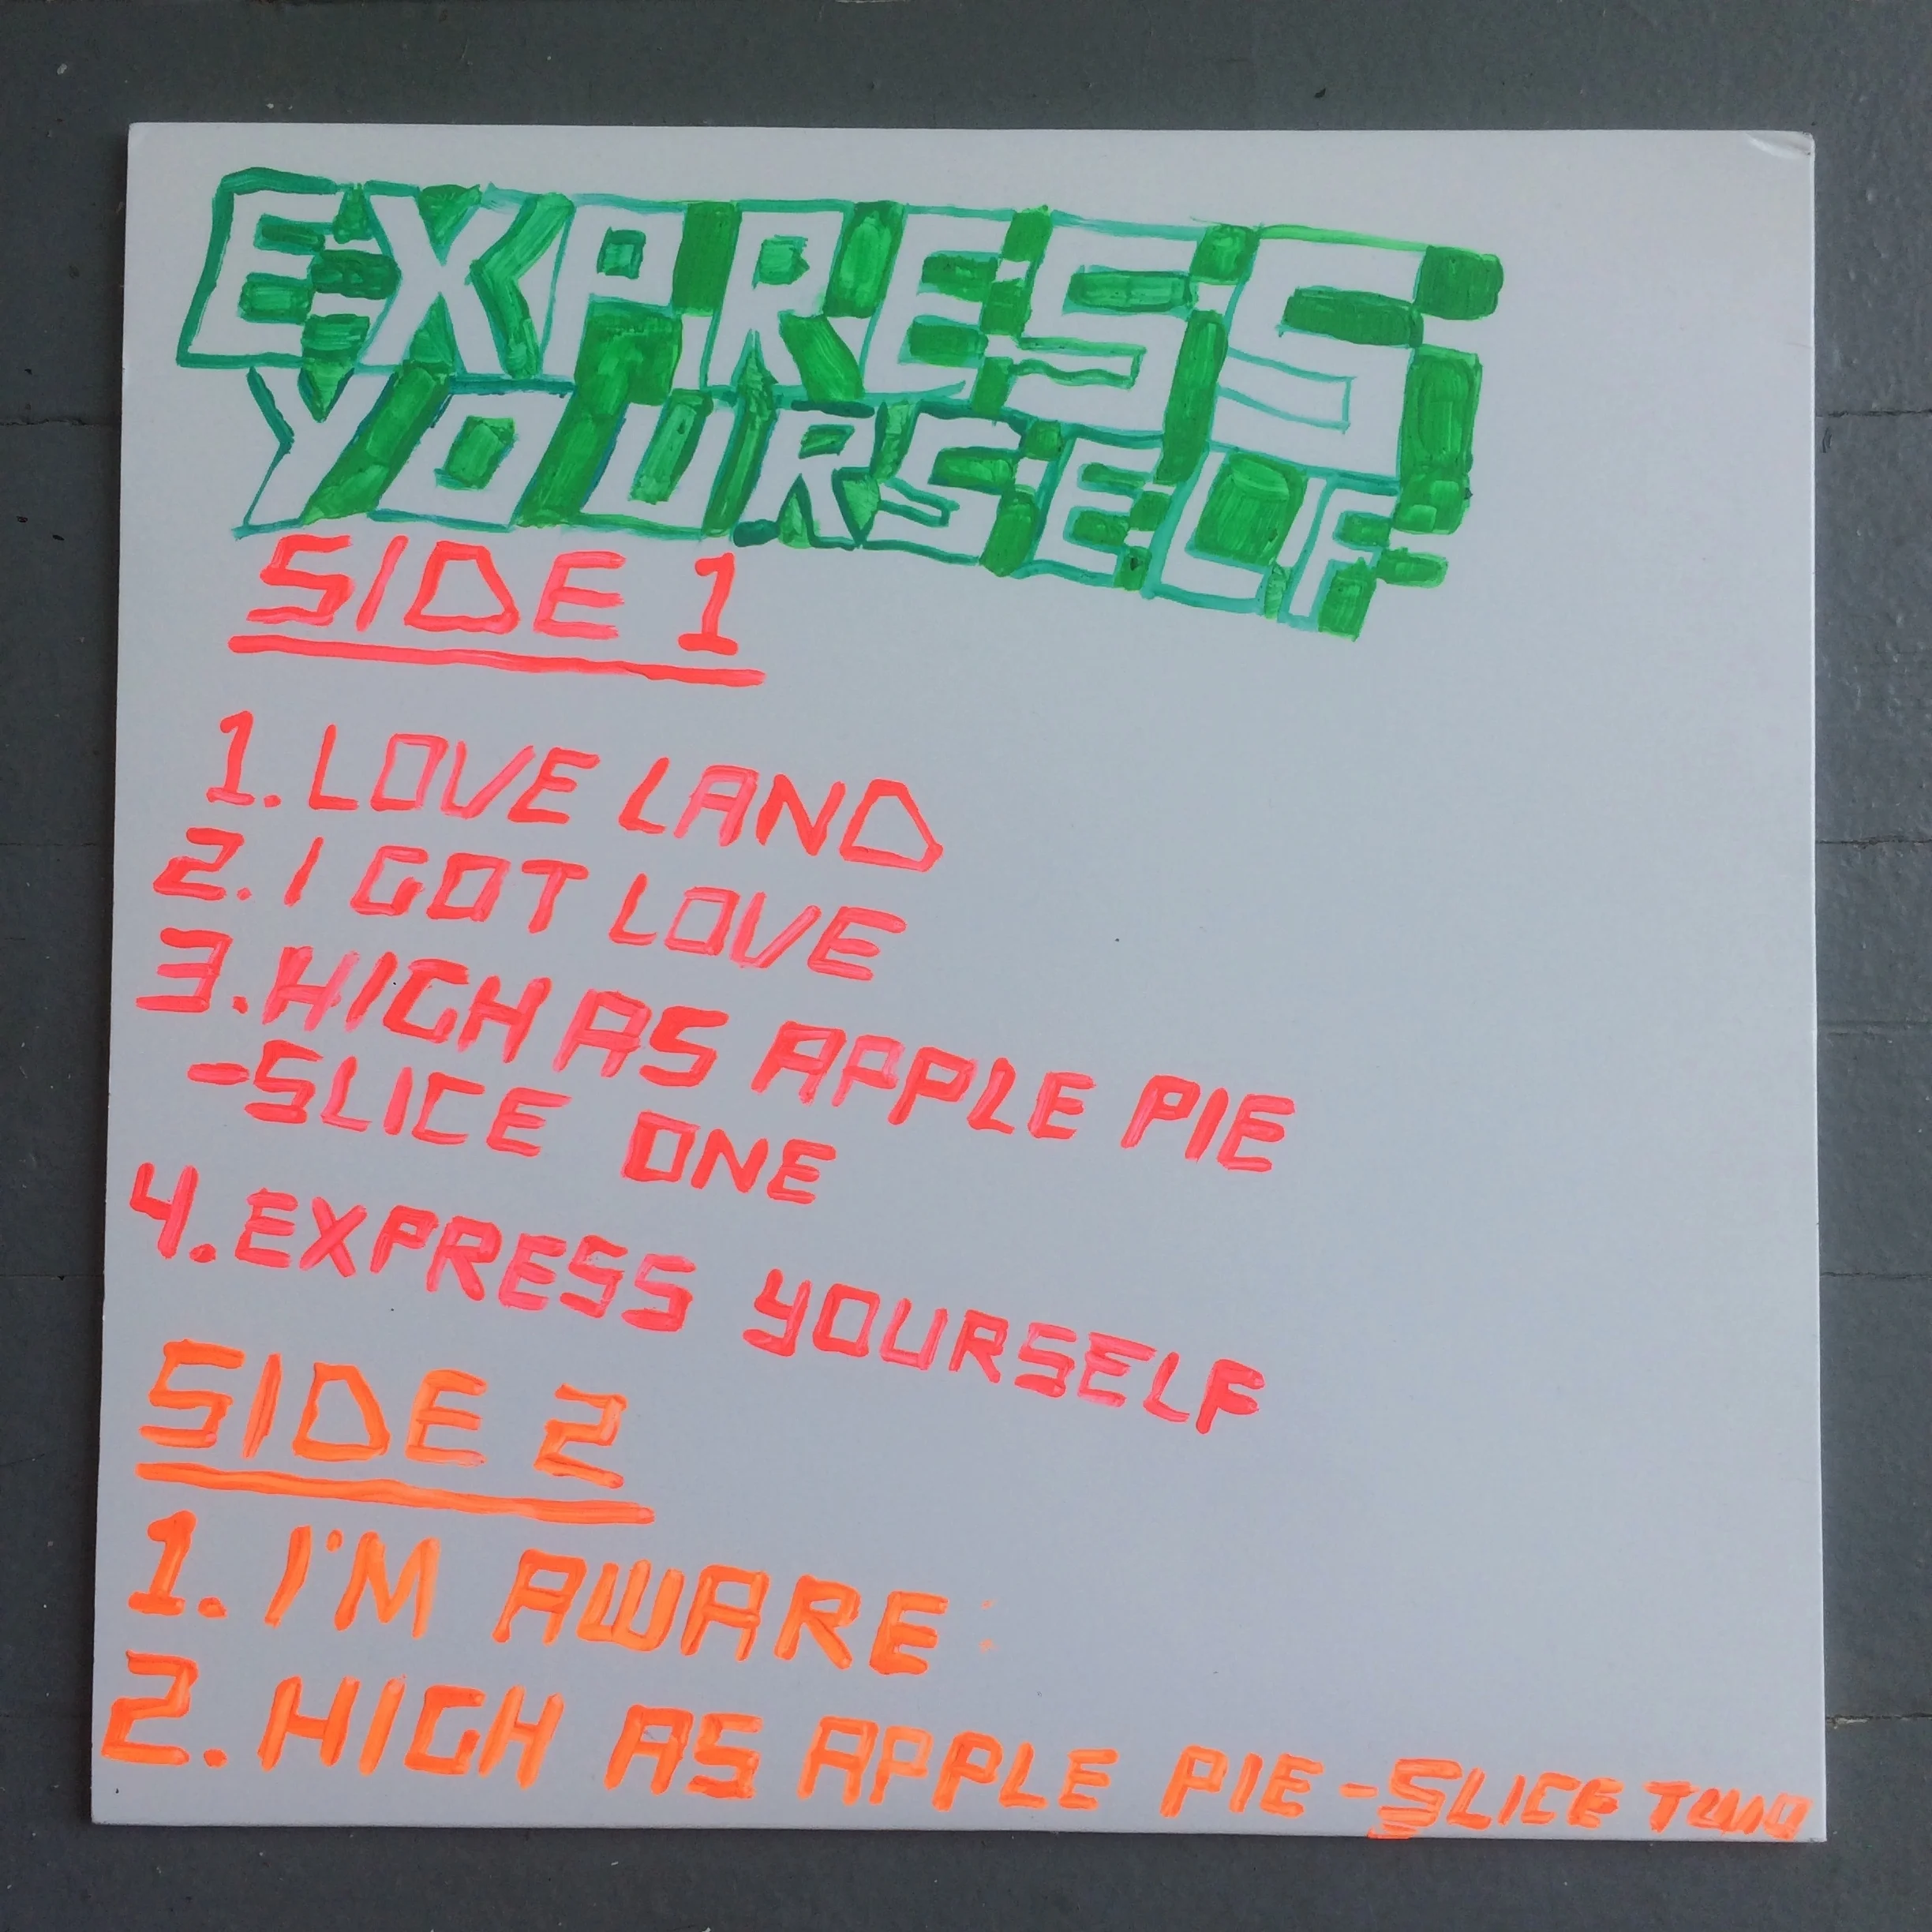 EXPRESS
YOURSELF
SIDE 1
1. LOVE LAND
2. I GOT LOVE
3. HIGH AS APPLE PIE
-SLICE ONE
4. EXPRESS YOURSELF
SIDE 2
1. I'M AWARE:
2. HIGH AS APPLE PIE-SLICE TWO